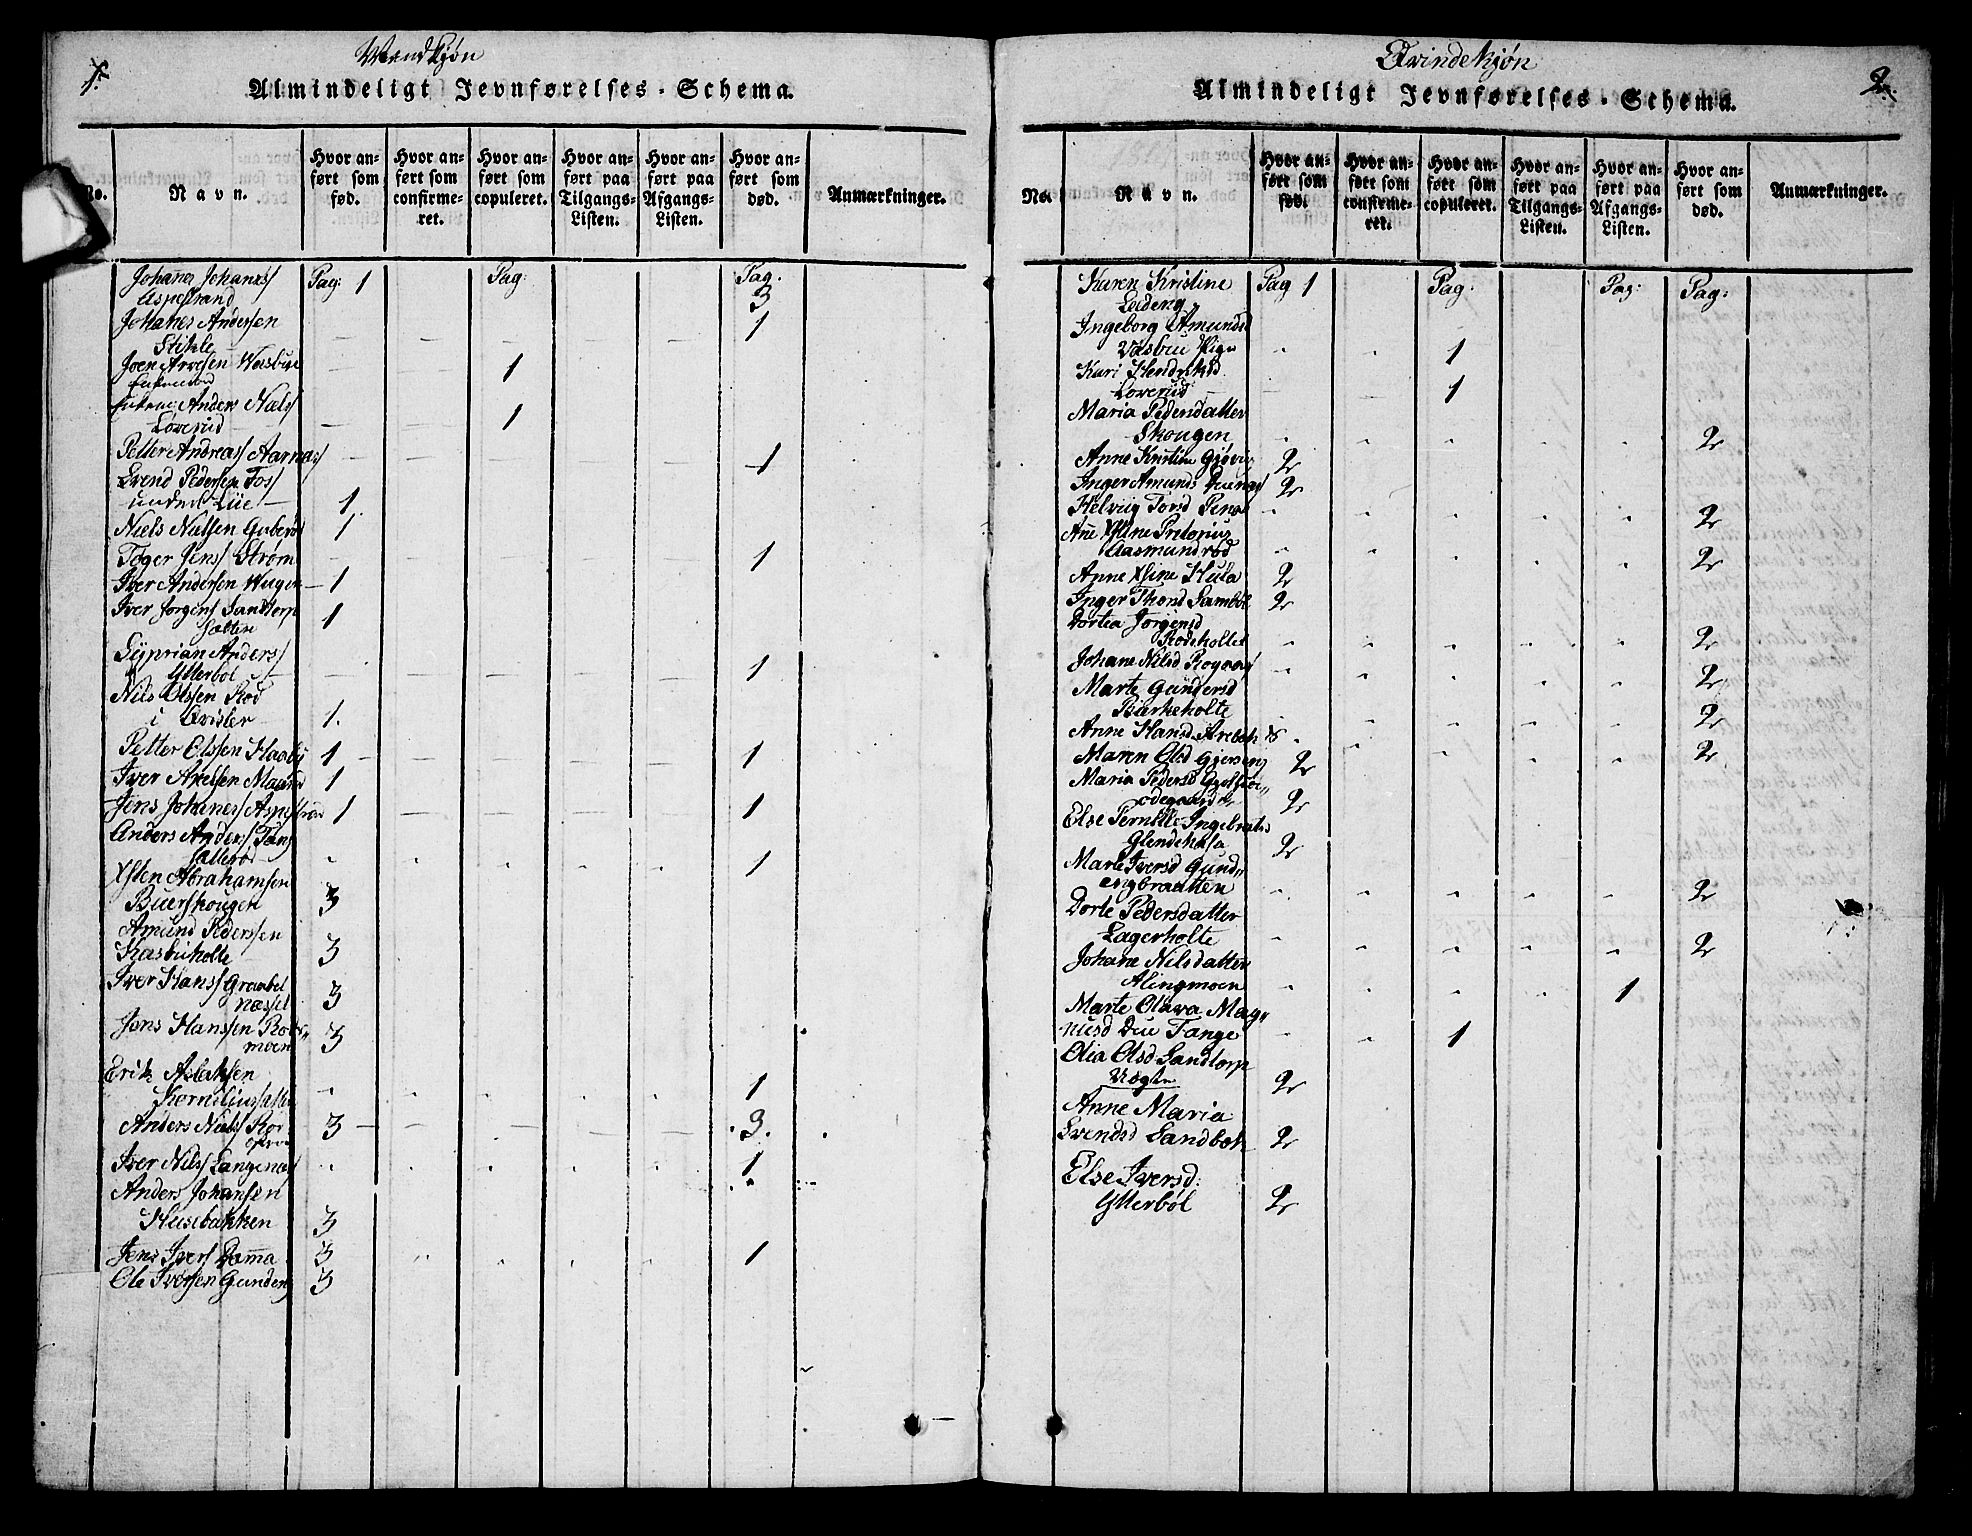 1.
Mandkjøn
Almindeligt Jevnførelses-Schema.
No.
Navn.
Hvor anført som fød.
Hvor anført som confirmeret.
Hvor anført som copuleret.
Hvor anført paa Tilgangs-Listen.
Hvor anført paa Afgangs-Listen.
Hvor anført som død.
Anmærkninger.
Johannes Johanes/ Pag: 1 Pag: Pag.
Aspestrand 3
Johanes Andersen 1
Stikle
Joen Arvesen Wasbye 1
Enkemand
Enkem: Anders Niels/
Løverud 1
Petter Andreas/ Aarnæs/ 1
Svend Pedersen Fos/
under Lie 1.
Niels Nielsen 1
Toger Jens/ Strøm 1
Iver Andersen Wugen 1
Iver Jorgens/ Sandtorp 1
Sætten
Cyprian Anders/
Ytterbøl 1
Nils Olssen Rød
i Qvisler 1.
Petter Olssen Haaby 1 1
Iver Axelsen 1
Jens Johanes/ Aspestrand 1 1
Anders Anders/ Tang
Sallerød 1
Xsten Abrahamsen
Buerskougen 3
Amund Pederssen
Kasbuholte 3
Iver Hans/ Graabøl
næsset 3
Jens Hanssen Rods
moen 3
Erik Aslaksen
1
Anders Niels/ Rør 3 3.
Iver Nils/ Langenæs/ 1
Anders Johansen
Husebakken 3
Jens Ivers/ Damma 3 1
Ole Iversen Gundeng 3
2.
Qvindekjøn
Almindeligt Jevnførelses-Schema.
No.
Navn.
Hvor anført som fød.
Hvor anført som confirmeret.
Hvor anført som copuleret.
Hvor anført paa Tilgangs-Listen.
Hvor anført paa Afgangs-Listen.
Hvor anført som død.
Anmærkninger.
Karen Kristine Pag 1 Pag: Pag: Pag:
Ledeng
Ingeborg Amundsd
Vasbu Pige 1
Kari Hendriksd
Løverud 1
Maria Pedersdatter
Skougen 2
Anne Kristine 2
Inger Amunds 2
Helvig Torsd 2
Ane Xstne Pretorius
Aasmundrød 2
Anne Xstine Hula 2
Inger Thorsd Sambøl 2
Dortea Jørgensd
Rødsholtet 2
Johane Nilsd 2
Marte Gundersd
Bjirkeholte 2
Anne Hansd 2
Maren Olsd 2
Maria Pedersd
ødegaard 2
Else Pernille Ingebrets
Glendehasa 2
Marte Iversd Gund
engbraatten 2
Dorte Pedersdatter
Lagerholte 2
Johane Nilsdatter
Alingmoen 1
Marte Olava Mag
nusd Due Tange 1
Olia Olsd Sandtorp
2
Anne Maria
Svendsd Sandbæk 2
Else Iversd:
Ytterbøl 2